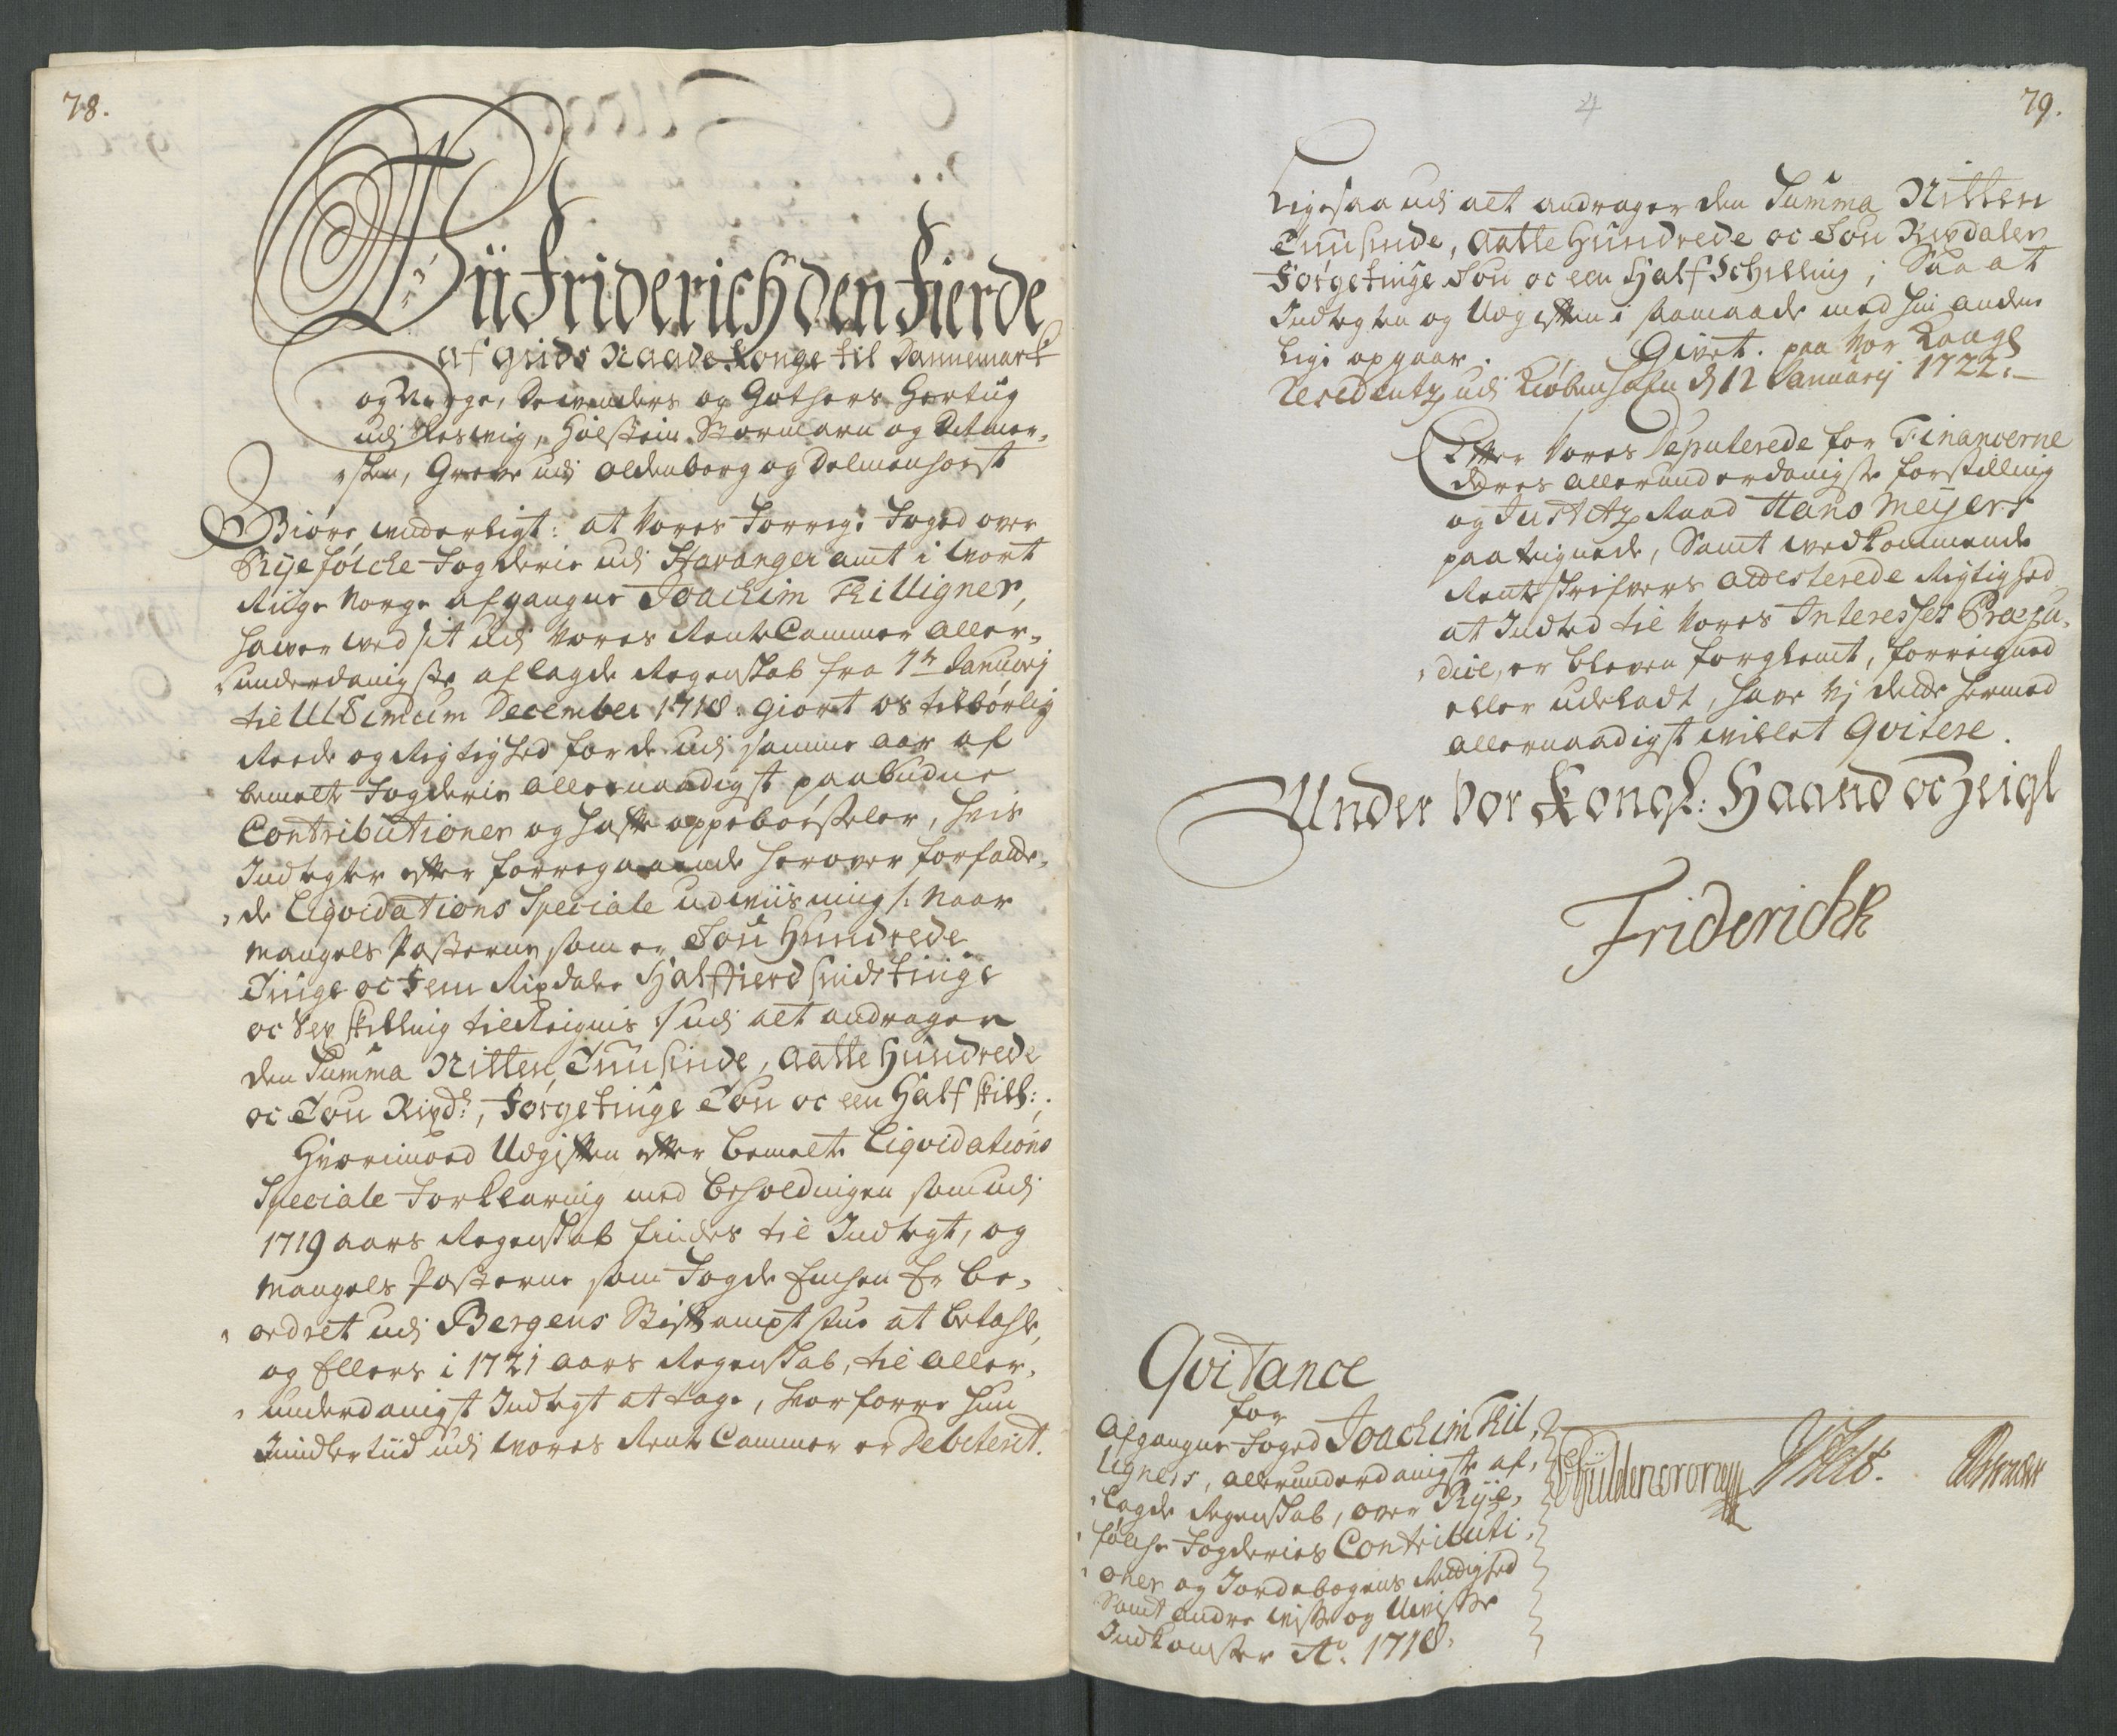 78.
Vii Friderich den Fierde
af Guds Naade Konge til Dannemark
og Norge, De Wenders og Gothers Hertug
udj Slesvig, Holstein, Stormarn og Ditmer-
-sken, Greve udj Oldenborg og Delmenhorst
Giøre witterligt: at Vores Forrige Foged over
Ryefølche Fogderie udj Stavanger amt i wort
Riige Norge afgangne Joachim Killigner,
hawer wed sit udj Vores Rente Cammer Aller-
-underdanigste aflagde Regenskab fra 1te Januarij
til Ultimum December 1718. giort os tilbørlig
Reede og Rigtighed for de udj samme Aar af
bemelte Fogderie Allernaadigst paabudne
Contributioner og hafte oppebørseler, hvis
Indtegter efter forregaaende herover forfatte-
-de Liqvidations Speciale udwiisning /: Naar
Mangels Posterne som er Tou Hundrede
Tiuge oc Fem Rixdaler Halffierdsindstiuge
oc Sex skilling tilReignis :/ udj alt andrager
den Summa Nitten Tuusinde, Aatte Hundrede
oc Tou Rixd:, Førgetiuge Tou oc een Half skill:;
Hvorimoed Udgiften efter bemelte Liqvidations
Speciale Forklaring med beholdningen som udj
1719 aars Regenskab findes til Indtegt, og
Mangels Posterne som Fogde Enchen Er be-
-ordret udj Bergens Stiftamptstue at betahle,
og Ellers i 1721 aars Regenskab, til Aller-
-underdanigst Indtegt at tage, hvorforre hun
Jmidlertiid udj wores Rente Cammer er Debiterit.
4
79.
Ligesaa udj alt andrager den Summa Nitten
Tuusinde, Aatte Hundrede oc Tou Rixdaler
Førgetiuge Tou oc een Half Schilling; Saa at
Indtegten og Udgiften i saamaade med hin anden
lige opgaar. Givet paa Vor Kongl
Residentz udi Kiøbenhafn d 12 Januarij 1722.
Efter Vores Deputerede for Financerne
deres Allerunderdanigste forstilling
og Justitz Raad Hans Meijers
paategnede, Samt wedkommende
Renteskrifvers Attesterede Rigtighed
at Indted til Vores Interesses Præju-
-dice, er bleven forglemt, forreigned
eller udeladt, have Vj dende hermed
Allernaadigst willet Qvitere.
Under Vor Kongl: Haand oc Zeigl
Friderich R
Qvitance
for
Afgangne Foged Joachim Kil-
ligners, Allerunderdanigste af-
-lagde Regenskab, over Rye-
-følche Fogderies Contributi-
-oner og Jordebogens Rettighed
Samt andre Wisse og Uwisse
Indkomster Ao. 1718.
Gÿldencrone